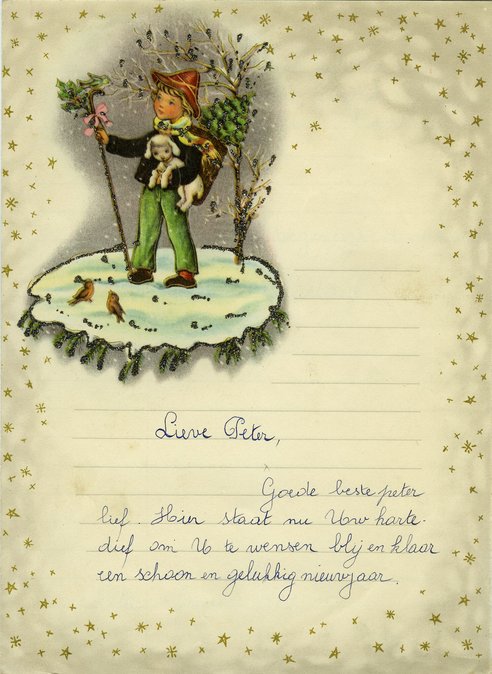 Lieve Peter,
Goede beste peter
lief. Hier staat nu Uw harte-
dief om U te wensen blij en klaar
een schoon en gelukkig nieuwjaar.